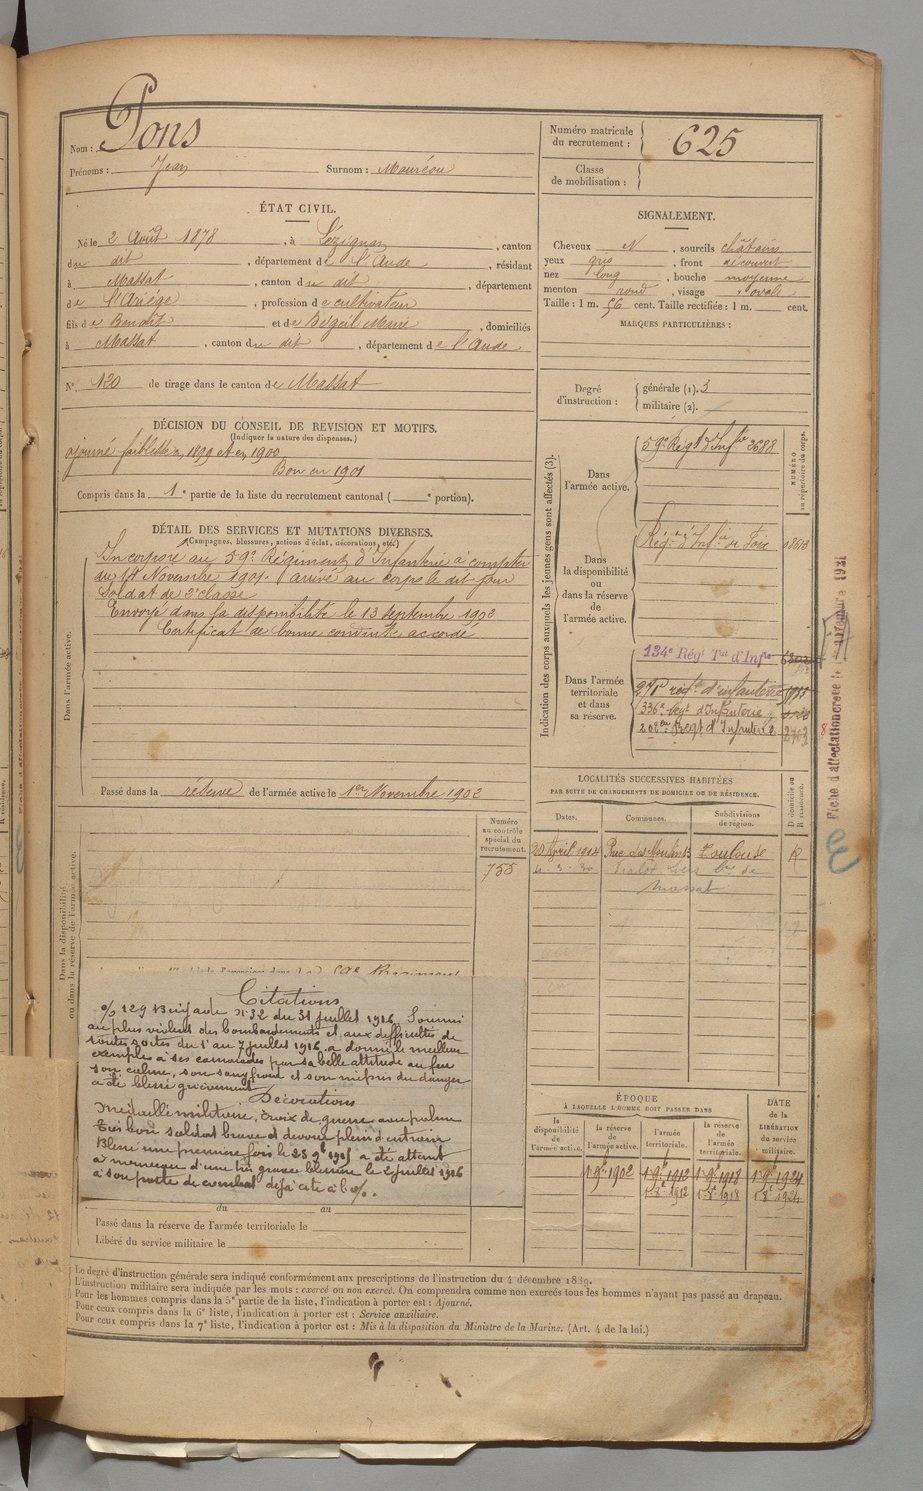 Nom : Pons
Prénoms : Jean Surnom : Mouréou
Numéro matricule du recrutement : 625
Classe de mobilisation :
ÉTAT CIVIL.
Né le 2 Août 1878, à Lézignan, canton
du dit, département de l'Aude, résidant
à Massat, canton du dit, département
de l'Ariège, profession de cultivateur
fils de Benoît et de Bégeil Marie, domiciliés
à Massat, canton du dit, département de l'Aude
N° 120 de tirage dans le canton de Massat
SIGNALEMENT.
Cheveux et, sourcils châtain
yeux gris, front découvert
nez long, bouche moyenne
menton rond, visage ovale
Taille : 1 m. 56 cent. Taille rectifiée : 1 m. cent.
MARQUES PARTICULIÈRES :
Degré d'instruction : générale (1). 3
militaire (2).
DÉCISION DU CONSEIL DE REVISION ET MOTIFS.
(Indiquer la nature des dispenses.)
ajourné faiblesse en 1899 et en 1900
Bon en 1901
Compris dans la 1e partie de la liste du recrutement cantonal ( e portion).
DÉTAIL DES SERVICES ET MUTATIONS DIVERSES.
(Campagnes, blessures, actions d'éclat, décorations, etc.)
Dans l'armée active.
Incorporé au 59e Régiment d'Infanterie à compter
du 14 Novembre 1901. arrivé au corps le dit jour
Soldat de 2e classe
Envoyé dans la disponibilité le 13 septembre 1902
Certificat de bonne conduite accordé
Passé dans la réserve de l'armée active le 1er Novembre 1902
Indication des corps auxquels les jeunes gens sont affectés (3).
NUMÉRO au répertoire du corps.
Dans l'armée active.
59e Régt d'Infie 2688
Dans la disponibilité ou dans la réserve de l'armée active.
Régt d'Infie de Foix
Dans l'armée territoriale et dans sa réserve.
134e Régt Tal d'Infie
271e régt d'infanterie
336e Regt d'Infanterie
202e Regt d'Infanterie 2703
Fiche d'affectation
LOCALITÉS SUCCESSIVES HABITÉES
PAR SUITE DE CHANGEMENTS DE DOMICILE OU DE RÉSIDENCE.
Dates. Communes. Subdivisions de région. D domicile ou R résidence.
20 Avril 1904 Toulouse R
4-3-20
Massat
Dans la disponibilité ou dans la réserve de l'armée active.
Numéro au contrôle spécial du recrutement.
755
Citations
o/ 129 Brigade N°32 du 31 juillet 1916. Soumis
au plus violent des bombardements et aux difficultés de
toutes sortes du 1er au 7 juillet 1916. a donné le meilleur
exemple à ses camarades par sa belle attitude au feu
son calme, son sang froid et son mépris du danger
a été blessé grièvement
Décorations
Médaille militaire, Croix de guerre avec palme
Très bon soldat brave et dévoué plein d'entrain
Blessé une première fois le 25 9bre 1915 a été atteint
à nouveau d'une très grave blessure le 2 juillet 1916
à son poste de combat déjà cité à l'o/.
du au
Passé dans la réserve de l'armée territoriale le
Libéré du service militaire le
ÉPOQUE
À LAQUELLE L'HOMME DOIT PASSER DANS
la disponibilité de l'armée active. la réserve de l'armée active. l'armée territoriale. la réserve de l'armée territoriale. DATE de la LIBÉRATION du service militaire.
1 9e 1902 1 9e 1912 1 9e 1918 1 9e 1924
1912 1918 1924
Le degré d'instruction générale sera indiqué conformément aux prescriptions de l'instruction du 4 décembre 1889.
L'instruction militaire sera indiquée par les mots : exercé ou non exercé. On comprendra comme non exercés tous les hommes n'ayant pas passé au drapeau.
Pour les hommes compris dans la 5e partie de la liste, l'indication à porter est : Ajourné.
Pour ceux compris dans la 6e liste, l'indication à porter est : Service auxiliaire.
Pour ceux compris dans la 7e liste, l'indication à porter est : Mis à la disposition du Ministre de la Marine. (Art. 4 de la loi.)